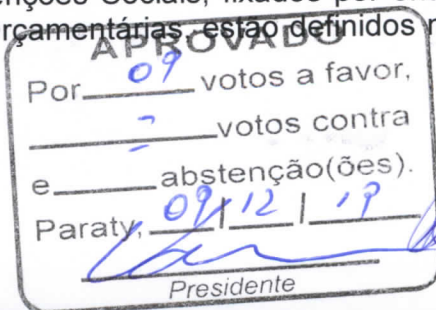 enções Sociais, fixados por
rçamentárias, estão definidos
APROVADO
Por 09 votos a favor,
- votos contra
e abstenção(ões).
Paraty, 09/12/19
Presidente